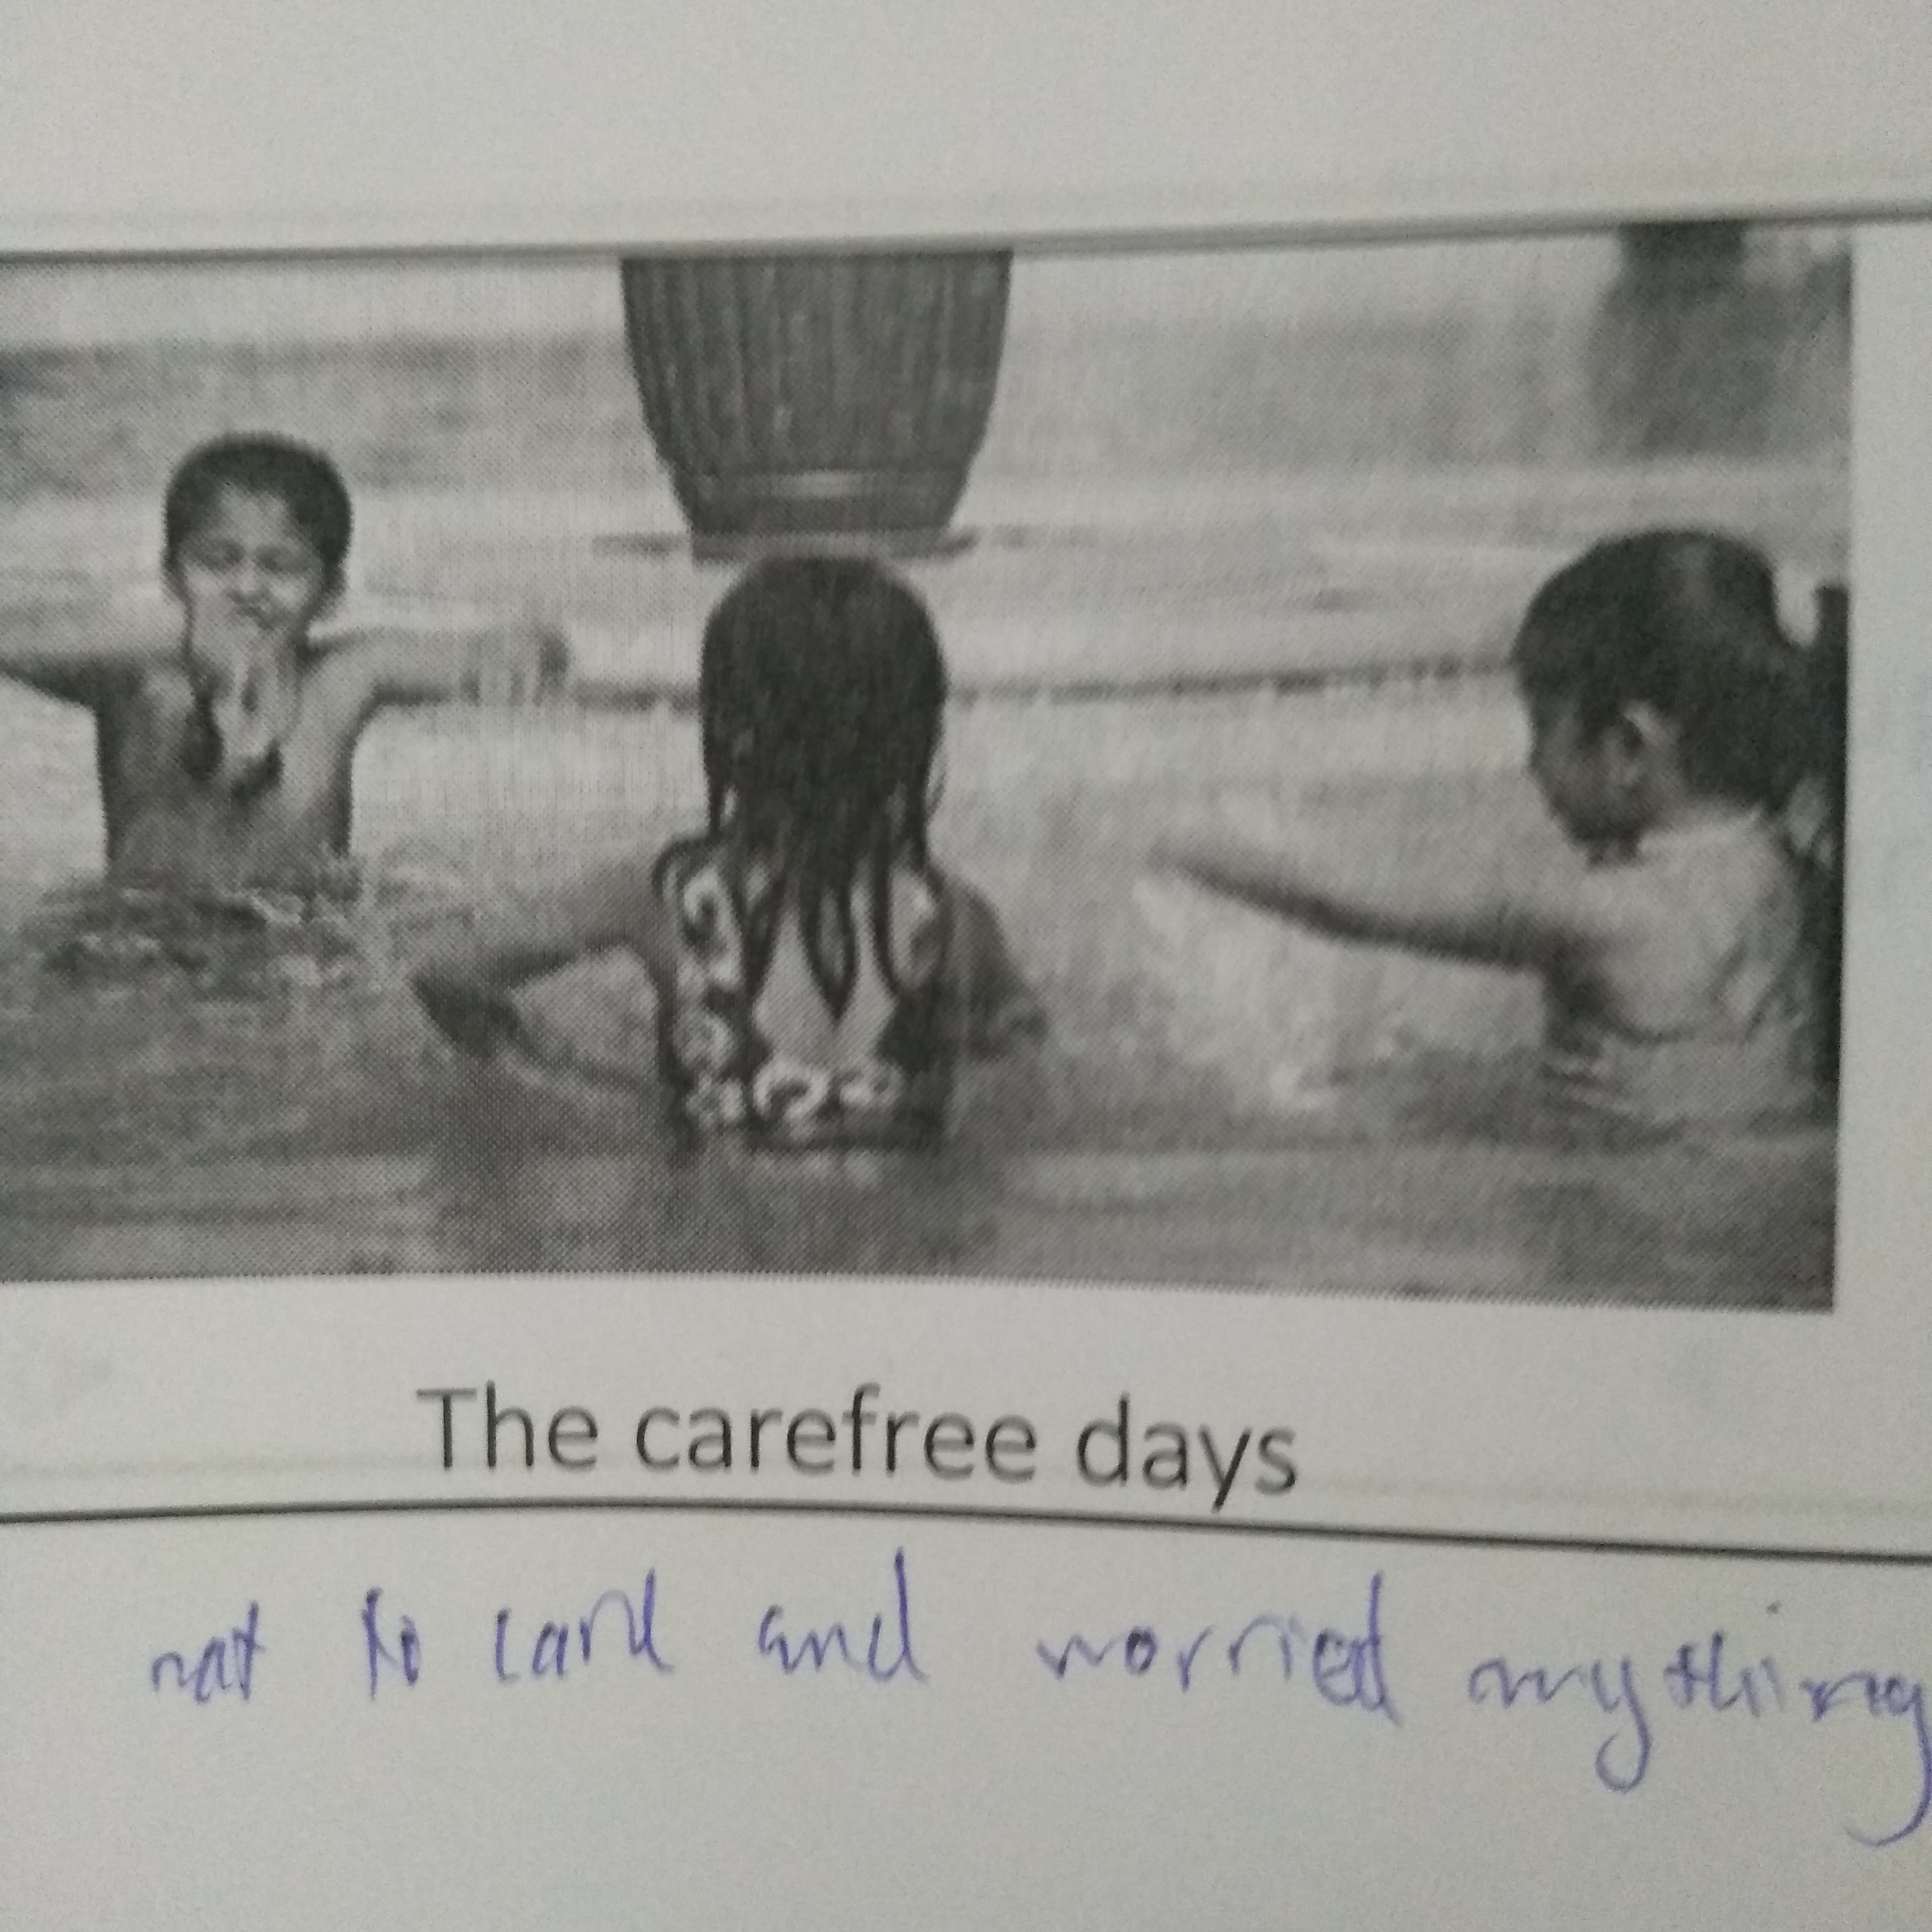 The carefree days
not to care and worried anything